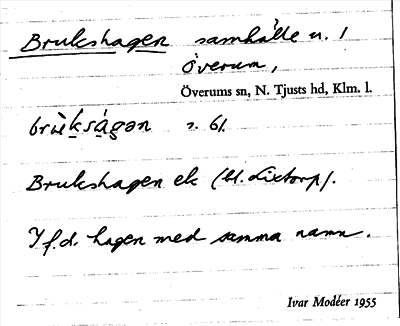 Brukshagen samhälle u. 1
Överum,
Överums sn, N. Tjusts hd, Klm. l.
s. 61.
Brukshagen ek (bl. Lixtorp).
I f.d. hagen med samma namn.
Ivar Modéer 1955